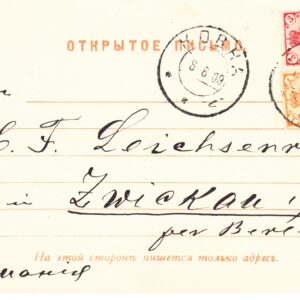 ОТКРЫТОЕ ПИСЬМО
КОВНА
8 6 09
C. F. Leichsenr
in Zwickau i
per Ber
На этой сторонѣ пишется только адресъ.
мания